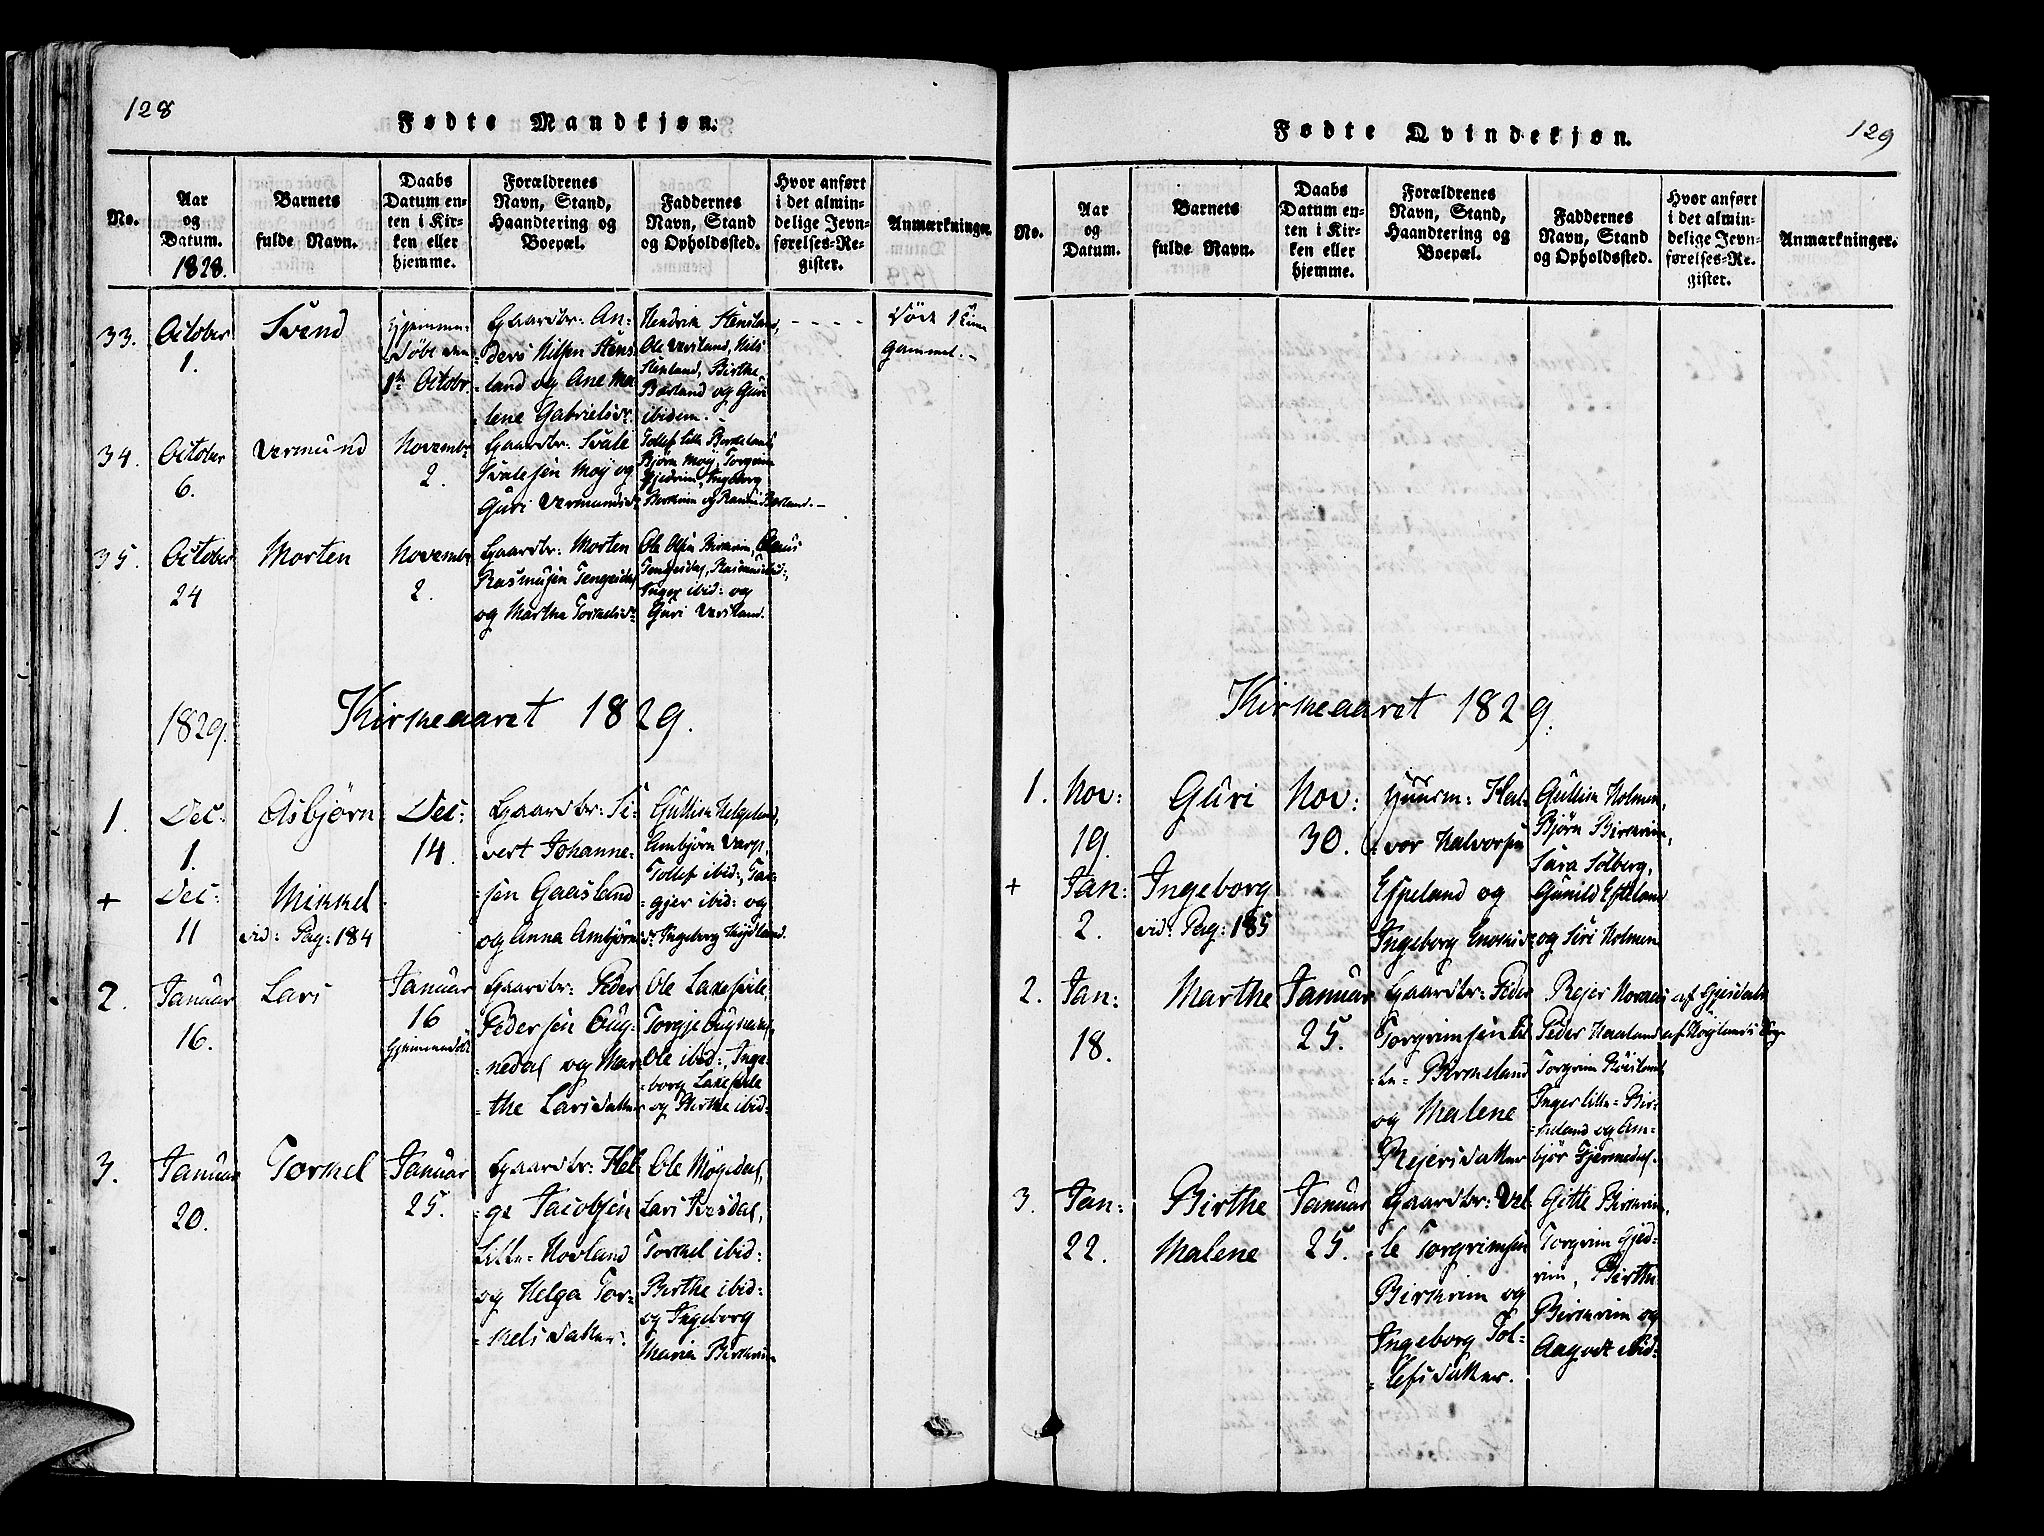 128
Fødte Mandkjøn.
No.
Aar
og
Datum.
1828.
Barnets
fulde Navn.
Daabs
Datum en-
ten i Kir-
ken eller
hjemme.
Forældrenes
Navn, Stand,
Haandtering og
Boepæl.
Faddernes
Navn, Stand
og Opholdssted.
Hvor anført
i det almin-
delige Jevn-
førelses-Re-
gister.
Anmærkninger.
33.
October
1.
Svend
Hjemme-
døbt den
1te Octobr.
Gaardbr: An-
ders Nilsen Stens-
land og Ane Ma-
lene Gabrielsdr.
Hendrik Stensland,
Ole Versland, Nils
Stensland, Birthe
Birkeland og Guri
ibidem.
- - - -
Død 1 Time
gammel. -
34.
October
6.
Vermund
Novembr
2.
Gaardbr: Svale
Svalesen Moÿ og
Guri Vermundsdr
Tollef Lille Birkeland
Bjørn Moÿ, Torgrim
Gjedrim, Ingeborg
Birkrim og Rande Hovland. -
35.
October
24
Morten
Novembr
2.
Gaardbr: Morten
Rasmusen Tengesdal
og Martha Torkelsdr
Ole Olsen Birkrim, Rasmus
Tengesdal, Rasmus ibid:,
Inger ibid: og
Guri Versland.
1829.
Kirkeaaret 1829.
1.
Dec:
1.
Asbjørn
Dec:
14.
Gaardbr: Si-
vert Johanne-
sen Gaasland
og Anna Ambjørnsdr
Gullik Helgeland,
Ambjørn Varp,
Tollef ibid:, Tar-
gjer ibid: og
Ingeborg Nÿdland.
+
Dec:
11
Mikkel
vid: Pag: 184
2.
Januar
16.
Lars
Januar
16
Hjemmedøbt
Gaardbr: Peder
Pedersen Oug-
nedal og Mar-
the Larsdatter
Ole Laxesvele,
Torgje Ougnedal,
Ole ibid:, Inge-
borg Laxesvele
og Birthe ibid:
3.
Januar
20.
Torkel
Januar
25.
Gaardbr: Hel-
ge Jacobsen
Lille-Hovland
og Helga Tor-
kelsdatter.
Ole Møgedal,
Lars Bresdal,
Torkel ibid:
Birthe ibid:
og Ingeborg
Maria Birkrim
129
Fødte Qvindekjøn.
No.
Aar
og
Datum.
Barnets
fulde Navn.
Daabs
Datum en-
ten i Kir-
ken eller
hjemme.
Forældrenes
Navn, Stand,
Haandtering og
Boepæl.
Faddernes
Navn, Stand
og Opholdssted.
Hvor anført
i det almin-
delige Jevn-
førelses-Re-
gister.
Anmærkninger.
Kirkeaaret 1829.
1.
Nov:
19.
Guri
Nov:
30.
Huusm: Hal-
vor Halvorsen
Espeland og
Ingeborg Enoksdr
Gullik Holmen,
Bjørn Birkrim,
Sara Solberg,
Gunild Efteland
og Siri Holmen
+
Jan:
2.
Ingeborg
vid: Pag: 185
2.
Jan:
18.
Marthe
Januar
25.
Gaardbr: Peder
Torgrimsen Lil-
le-Birkeland
og Malene
Rejersdatter
Rejer Nornes af Gjesdals
Peder Haaland af Høÿlands Sog
Torgrim Røisland
Inger Lille-Bir-
keland og Am-
bjør Fjermedal.
3.
Jan:
22.
Birthe
Malene
Januar
25.
Gaardbr: Vel-
le Torgrimsen
Birkrim og
Ingeborg Tol-
lefsdatter.
Gitte Birkrim,
Torgrim Gjed-
rim, Birthe
Birkrim og
Aagodt ibid: